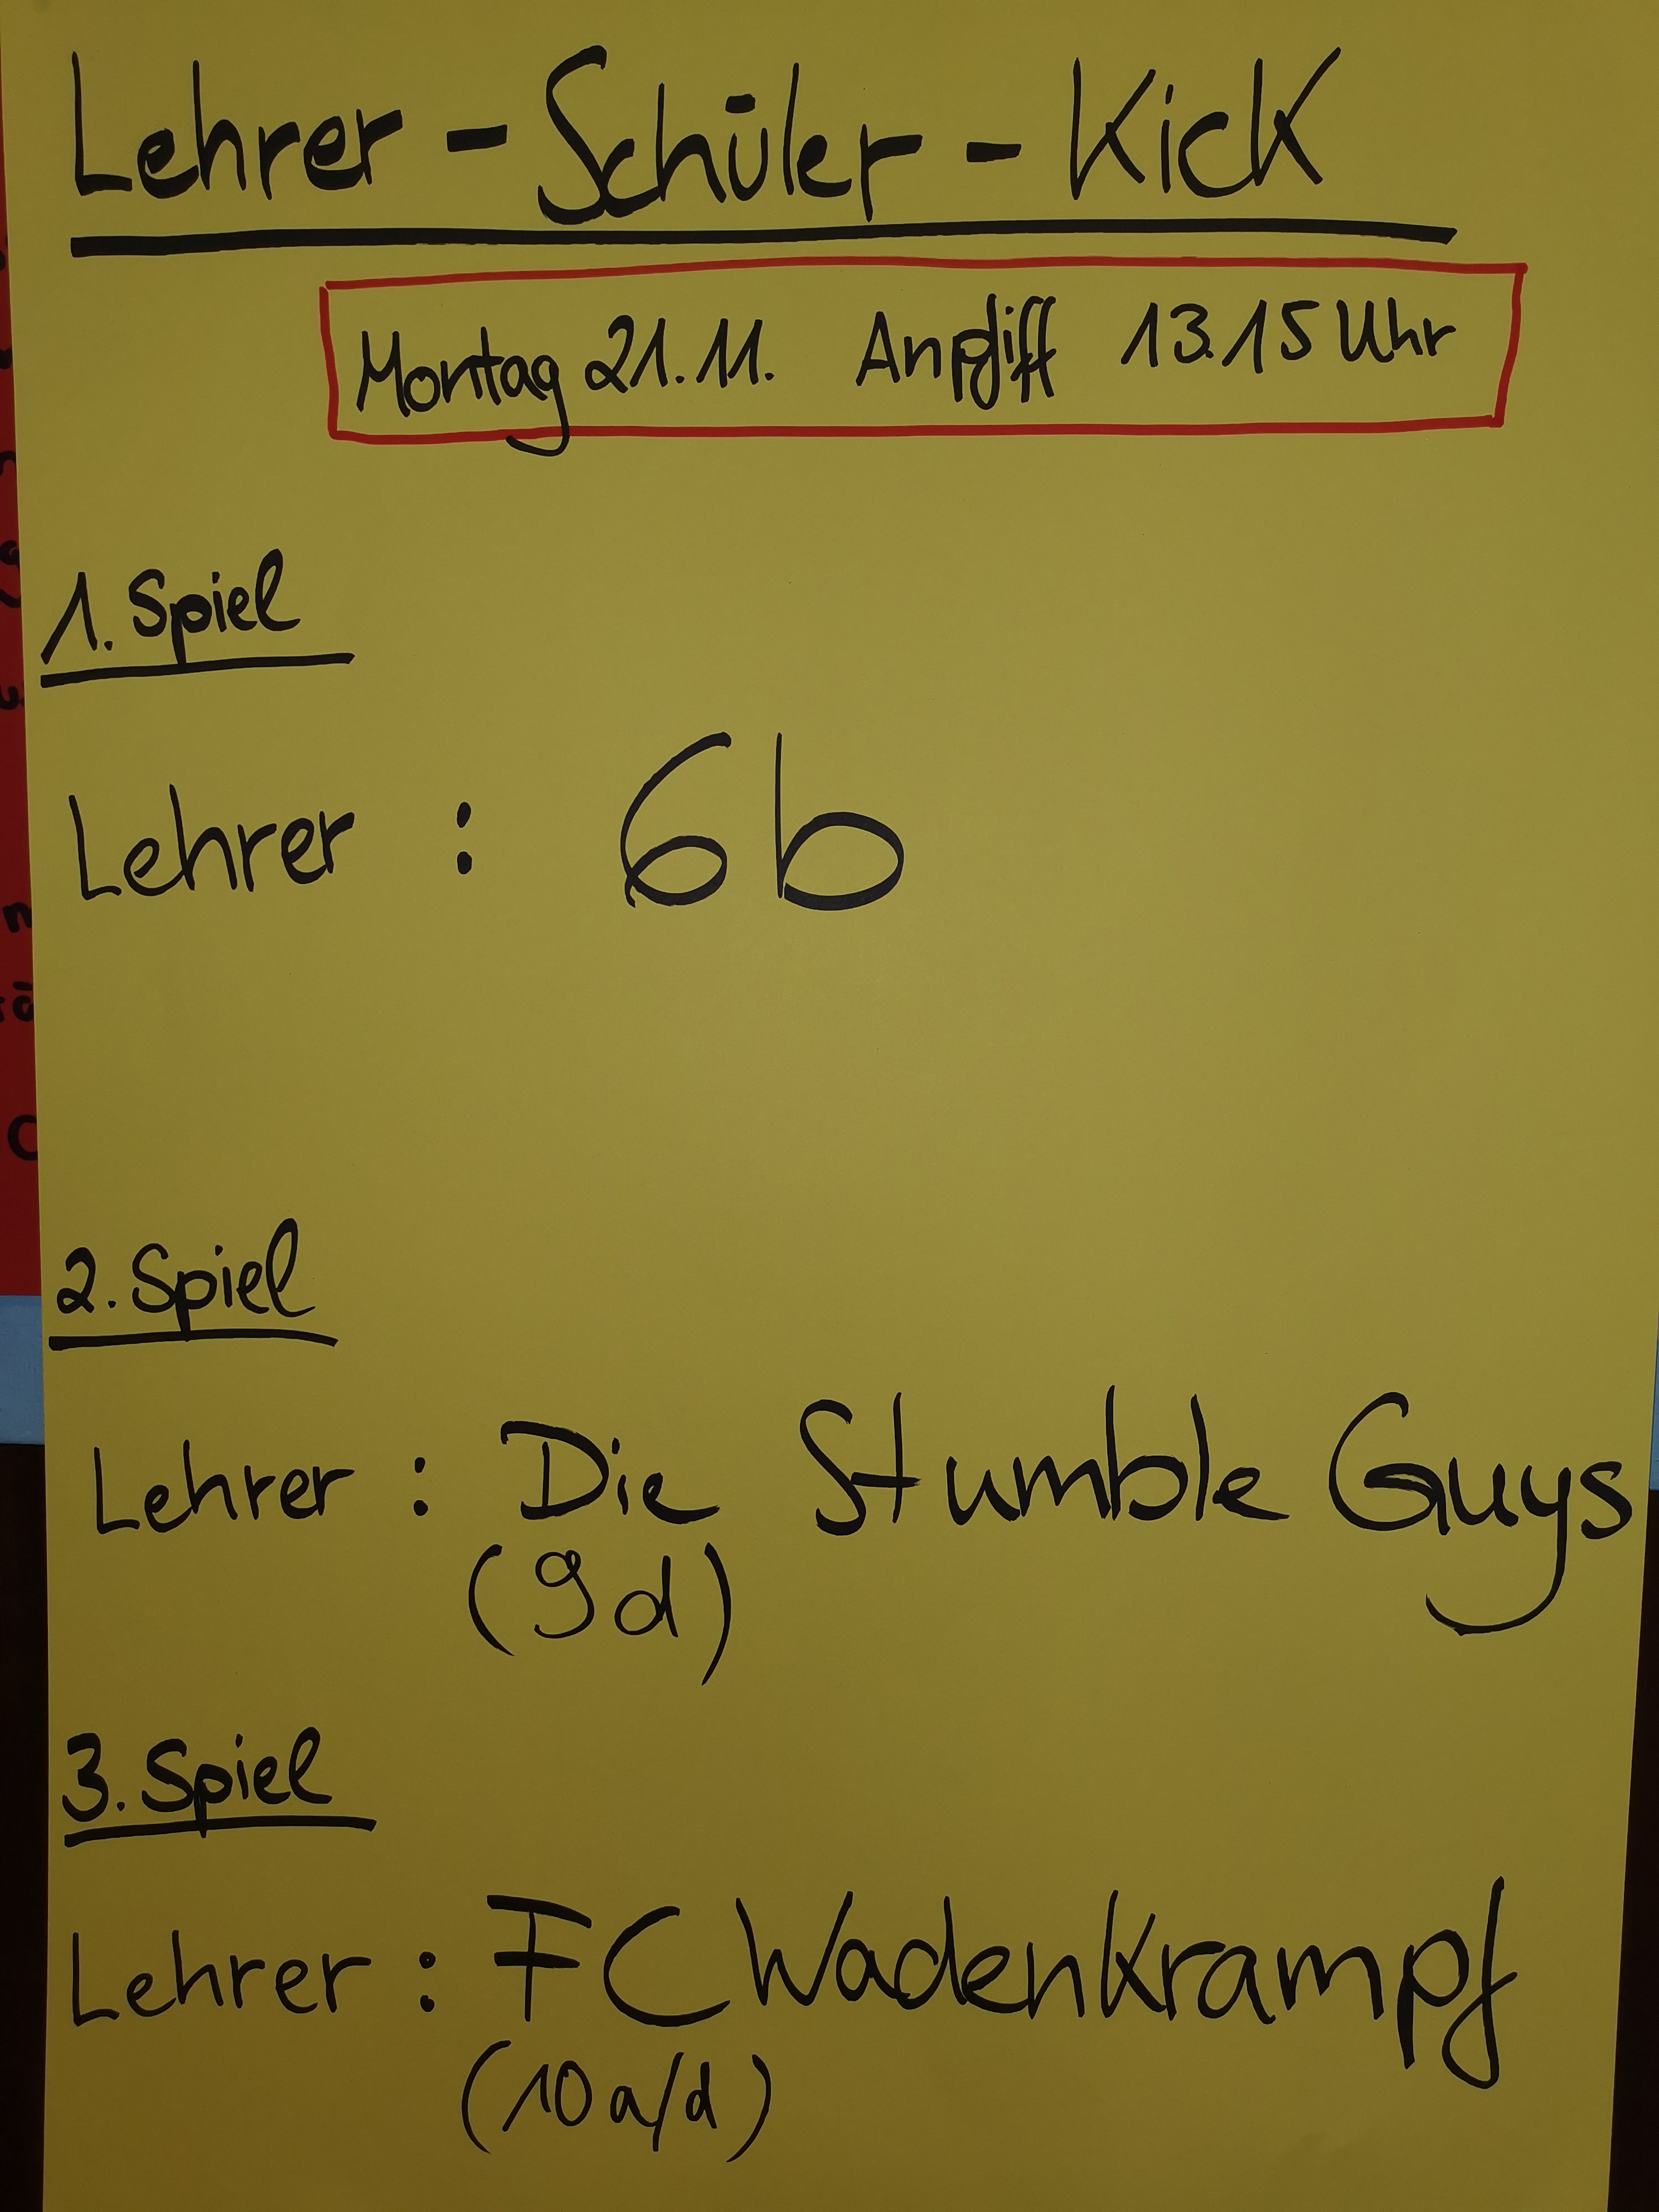 Lehrer-Schüler-Kick
Montag 21.11. Anpfiff 13.15 Uhr
1. Spiel
Lehrer : 6b
2. Spiel
Lehrer : Die Stumble Guys
(9d)
3. Spiel
Lehrer : FC Wadenkrampf
(10a/d)